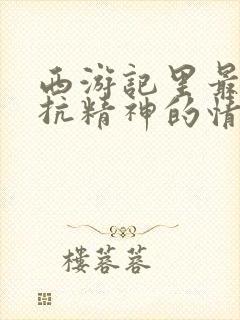 西游记里最
抗精神的情
楼蓉蓉